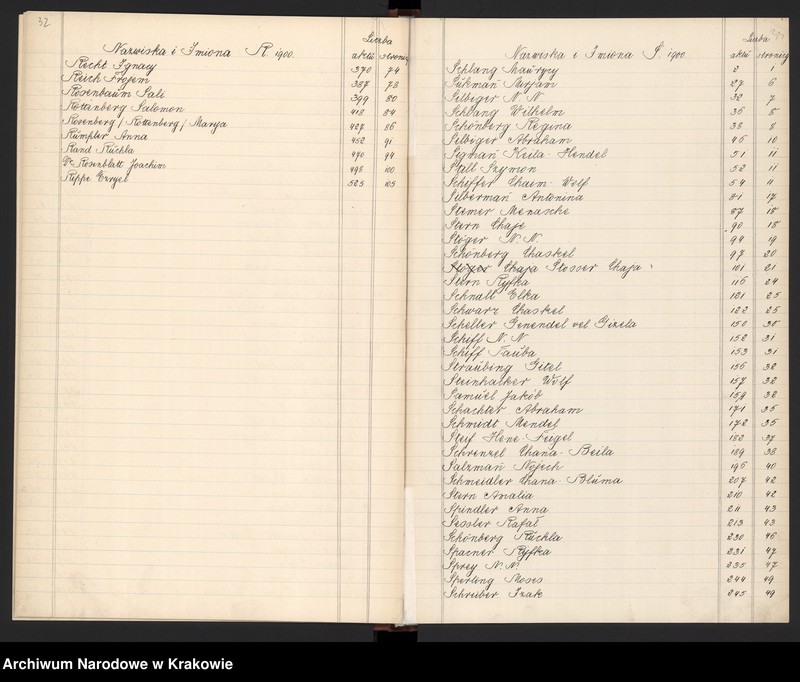 32
Nazwiska i Imiona R. 1900.
Liczba
aktu stronicy
Recht Ignacy 370 74
Reich Frojem 387 78
Rosenbaum Sali 399 80
Rottenberg Salomon 418 84
Rosenberg / Rottenberg / Marya 427 86
Rümpler Anna 452 91
Rand Rüchla 470 94
Dr Rosenblatt Joachim 498 100
Rippe Ezryel 525 105
Nazwiska i Imiona S. 1900.
Liczba
aktu stronicy
Schlang Maürycy 2
Sükman Mirjam 27 6
Silbiger N. N. 32 7
Schlang Wilhelm 36 8
Schönberg Regina 38 8
Silbiger Abraham 46 10
Sigman Keila Hendel 51 11
Stall Szymon 52 11
Schiffer Chaim Wolf 54 11
Silberman Antonina 81 17
Stemer Menasche 87 18
Stern Chaje 90 18
Stöger N. N. 94 19
Schönberg Chaskel 97 20
Stöger Chaja Slosser Chaja 101 21
Stern Ryfka 116 24
Schnall Elka 121 25
Schwarz Chaskel 122 25
Scheller Genendel vel Gizela 150 30
Schiff N. N 152 31
Schiff Tauba 153 31
Straübing Gitel 156 32
Steinhalker Wolf 157 32
Samüel Jakób 159 32
Schachter Abraham 171 35
Schmidt Mendel 172 35
Steif Hene Feigel 182 37
Schrenzel Chana Beila 189 38
Salzman Nojech 196 40
Schmeidler Chana Blüma 207 42
Stern Amalia 210 42
Spindler Anna 211 43
Sessler Rafał 213 43
Schönberg Rüchla 230 46
Spacner Ryfka 231 47
Sprey N. N. 235 47
Sperling Moses 244 49
Schreiber Izak 245 49
Archiwum Narodowe w Krakowie